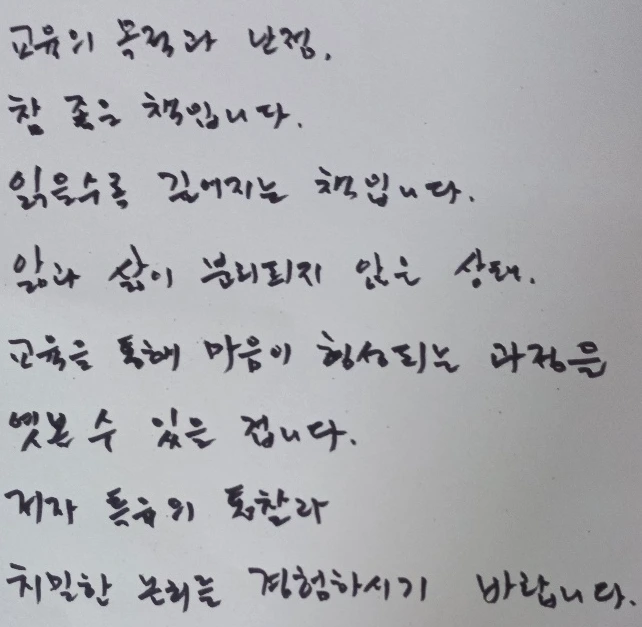 교육의 목적과 난점.
참 좋은 책입니다.
읽을수록 깊어지는 책입니다.
앎과 삶이 분리되지 않은 상태.
교육을 통해 마음이 형성되는 과정을
엿볼 수 있을 겁니다.
저자 특유의 통찰과
치밀한 논리를 경험하시기 바랍니다.